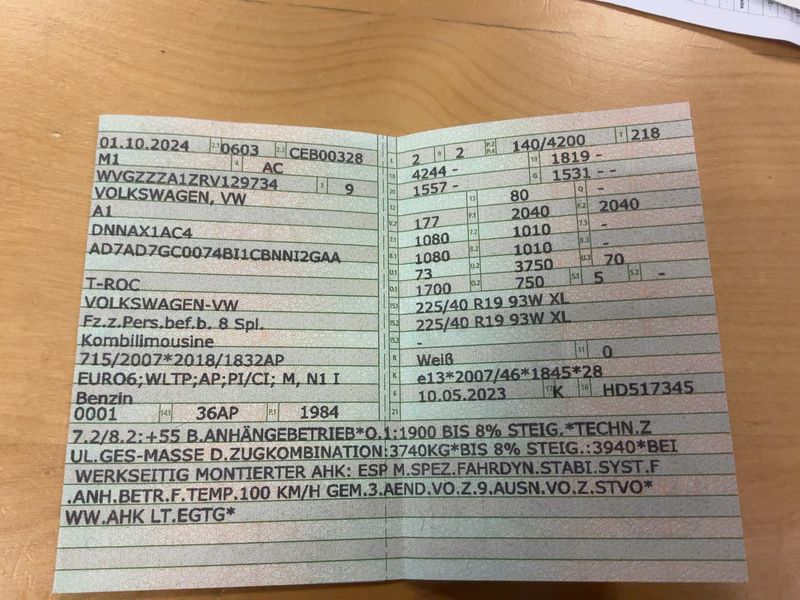 01.10.2024 2.1 0603 2.2 CEB00328
M1 4 AC
WVGZZZA1ZRV129734 3 9
VOLKSWAGEN, VW
A1
DNNAX1AC4
AD7AD7GC0074BI1CBNNI2GAA
T-ROC
VOLKSWAGEN-VW
Fz.z.Pers.bef.b. 8 Spl.
Kombilimousine
715/2007*2018/1832AP
EURO6;WLTP;AP;PI/CI; M, N1 I
Benzin
0001 14.1 36AP P.1 1984
L 2 9 2 P.2 P.4 140/4200 T 218
18 4244 - 19 1819 -
20 1557 - G 1531 - -
12 - 13 80 Q -
V.7 177 F.1 2040 F.2 2040
7.1 1080 7.2 1010 7.3 -
8.1 1080 8.2 1010 8.3 -
U.1 73 U.2 3750 U.3 70
O.1 1700 O.2 750 S.1 5 S.2 -
15.1 225/40 R19 93W XL
15.2 225/40 R19 93W XL
15.3 -
R Weiß 11 0
K e13*2007/46*1845*28
6 10.05.2023 17 K 16 HD517345
21
7.2/8.2:+55 B.ANHÄNGEBETRIEB*O.1:1900 BIS 8% STEIG.*TECHN.Z
UL.GES-MASSE D.ZUGKOMBINATION:3740KG*BIS 8% STEIG.:3940*BEI
WERKSEITIG MONTIERTER AHK: ESP M.SPEZ.FAHRDYN.STABI.SYST.F
.ANH.BETR.F.TEMP.100 KM/H GEM.3.AEND.VO.Z.9.AUSN.VO.Z.STVO*
WW.AHK LT.EGTG*